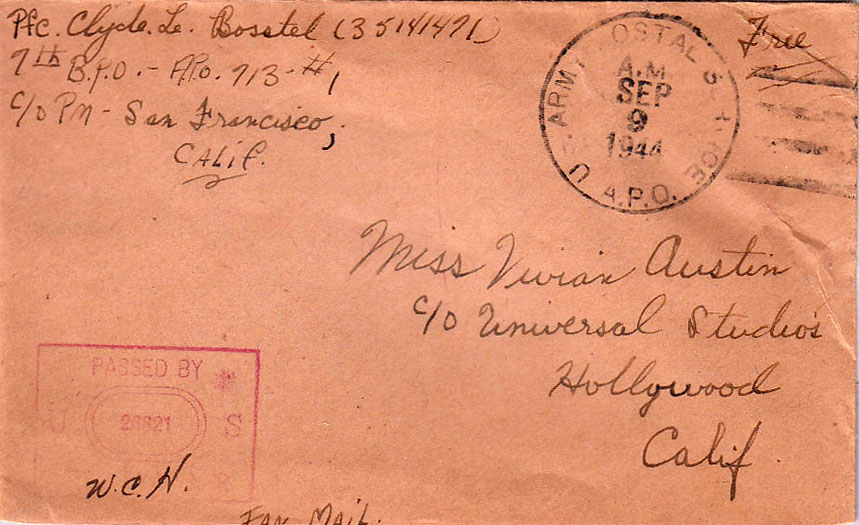 Pfc. Clyde. Le. Bosstel (35141471)
7th B.P.O. - A.P.o. 713 - #1
c/o PM - San Francisco,
CALIF.
Free
U.S. ARMY POSTAL SERVICE
A.M
SEP
9
1944
A.P.O.
Miss Vivian Austin
c/o Universal Studio's
Hollywood
Calif.
PASSED BY
U 26821 S
W.C.H.
FAN MAIL.